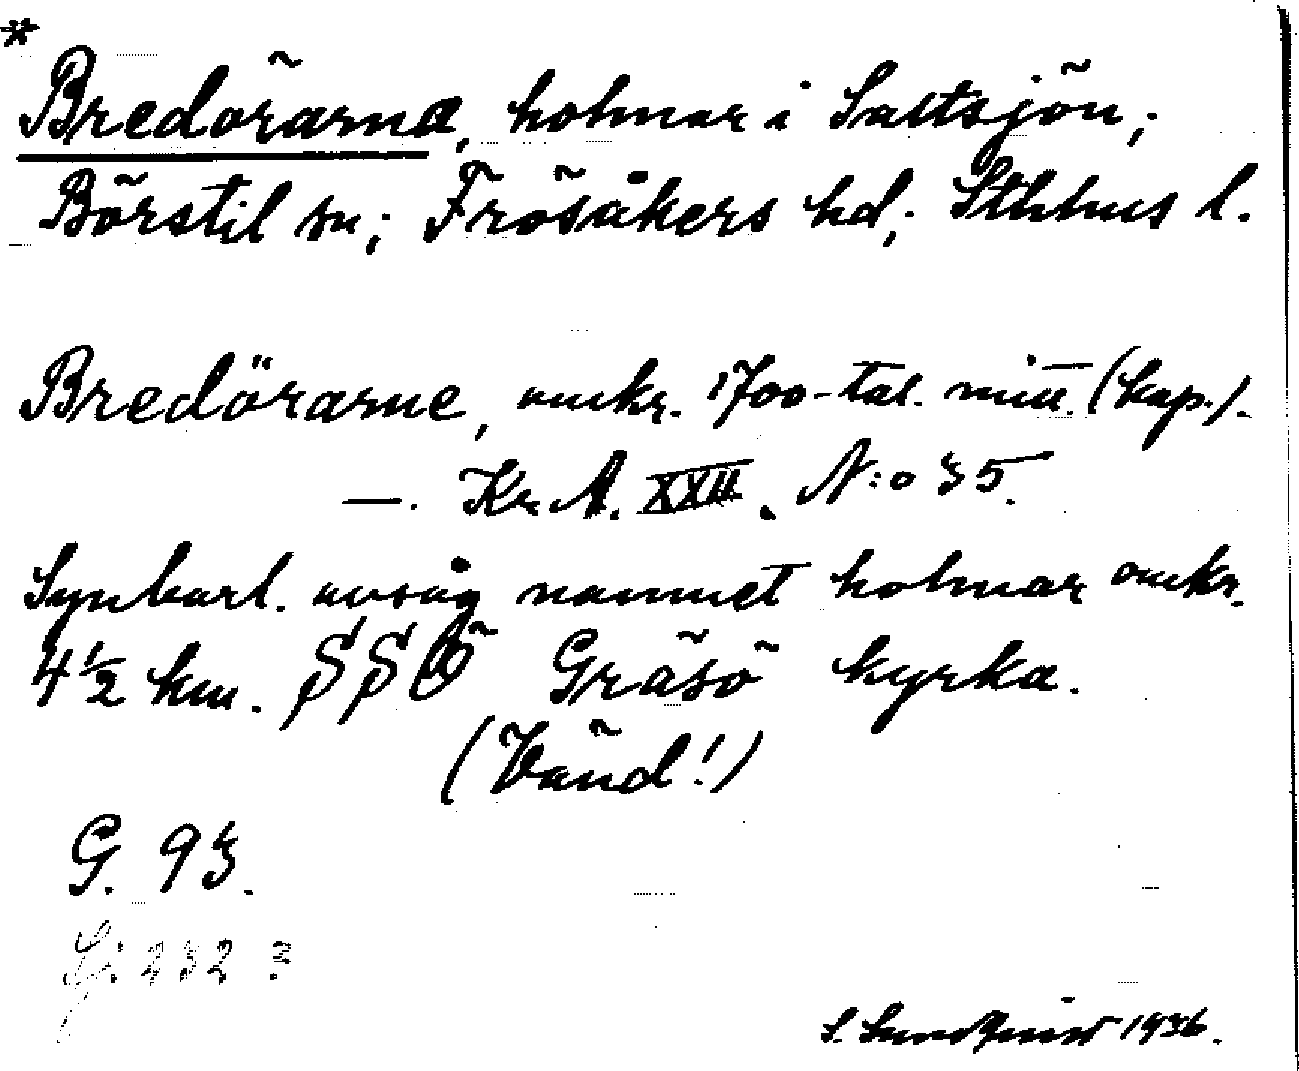 *
Bredörarna, holmar i Saltsjön;
Börstil sn; Frösåkers hd; Sthlms l.
Bredörarne, omkr. 1700-tal. mitt. (kap.).
—. Kr. A. XXII. N:o 35.
Synbarl. avsåg namnet holmar omkr.
4 1/2 km. SSÖ Gräsö kyrka.
(Vänd!)
G. 93.
Sj: 232 ?
S. Sundquist 1936.